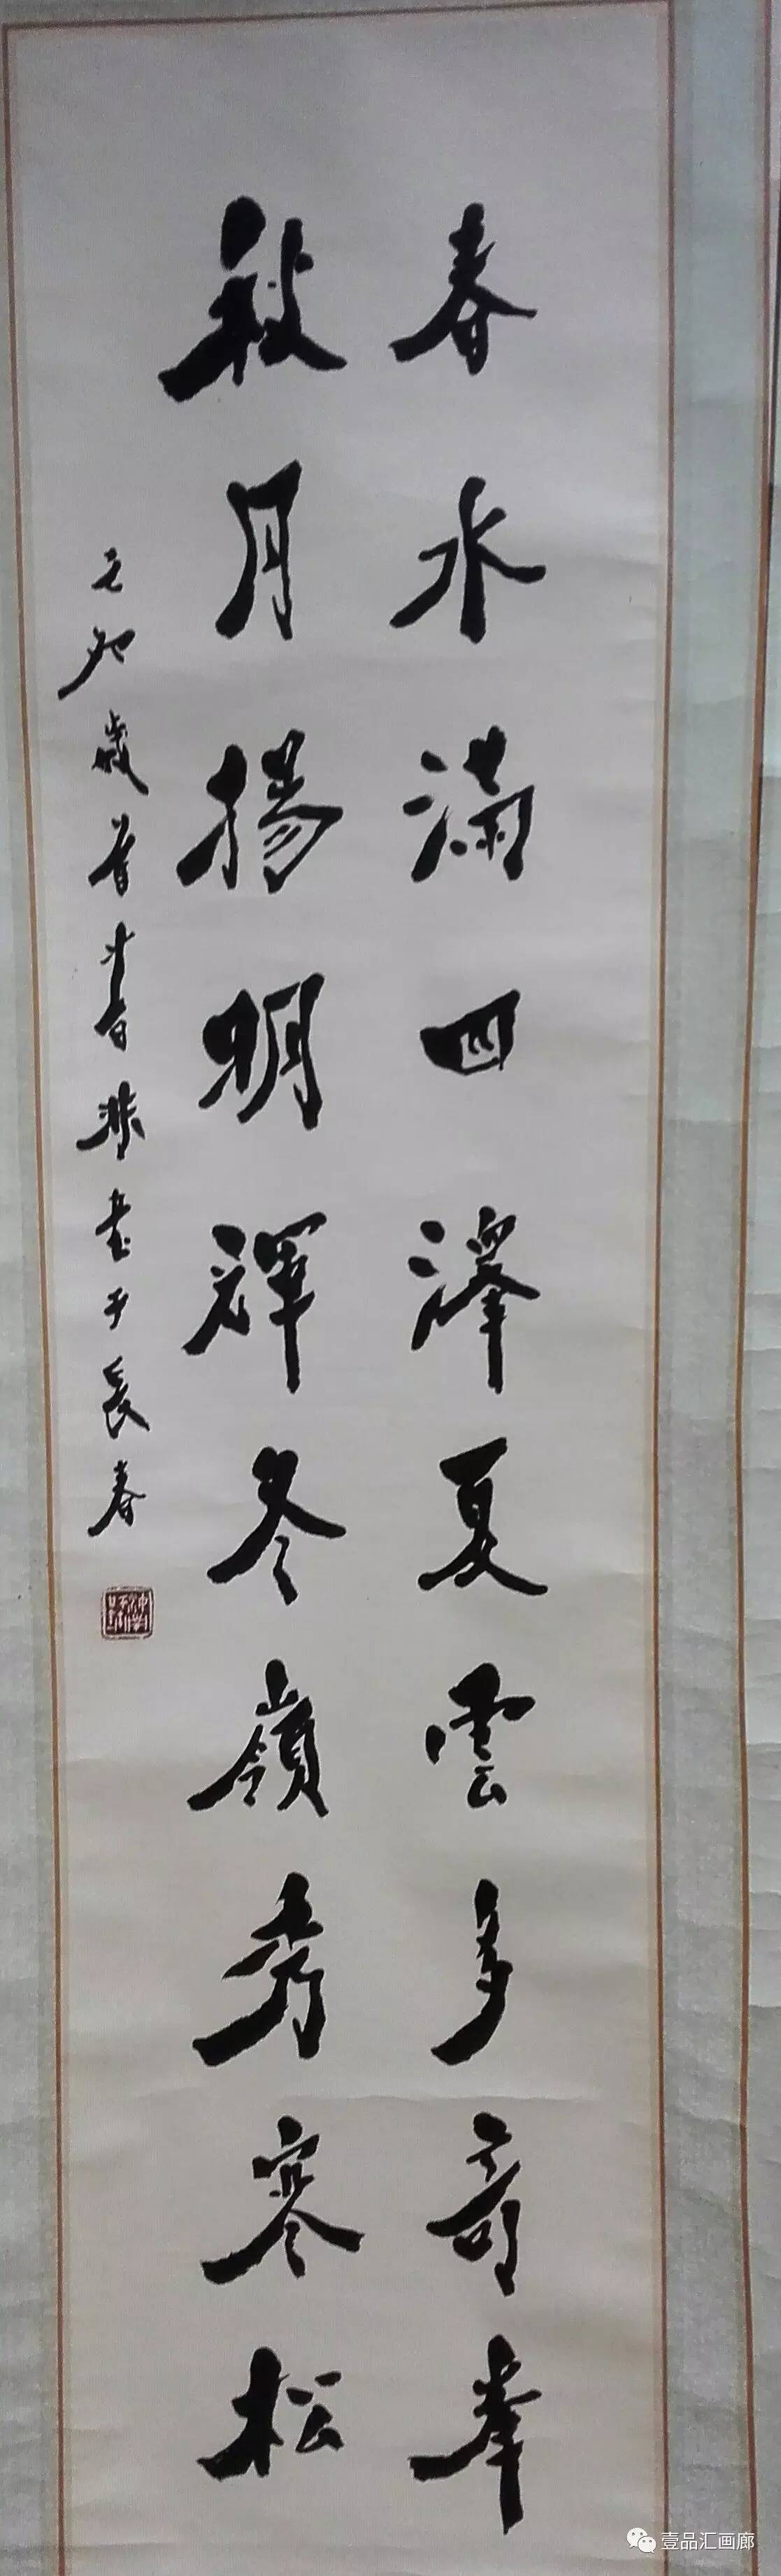 春水滿四澤夏雲多奇峯
秋月揚明輝冬嶺秀寒松
乙卯歲首書于長春
壹品汇画廊